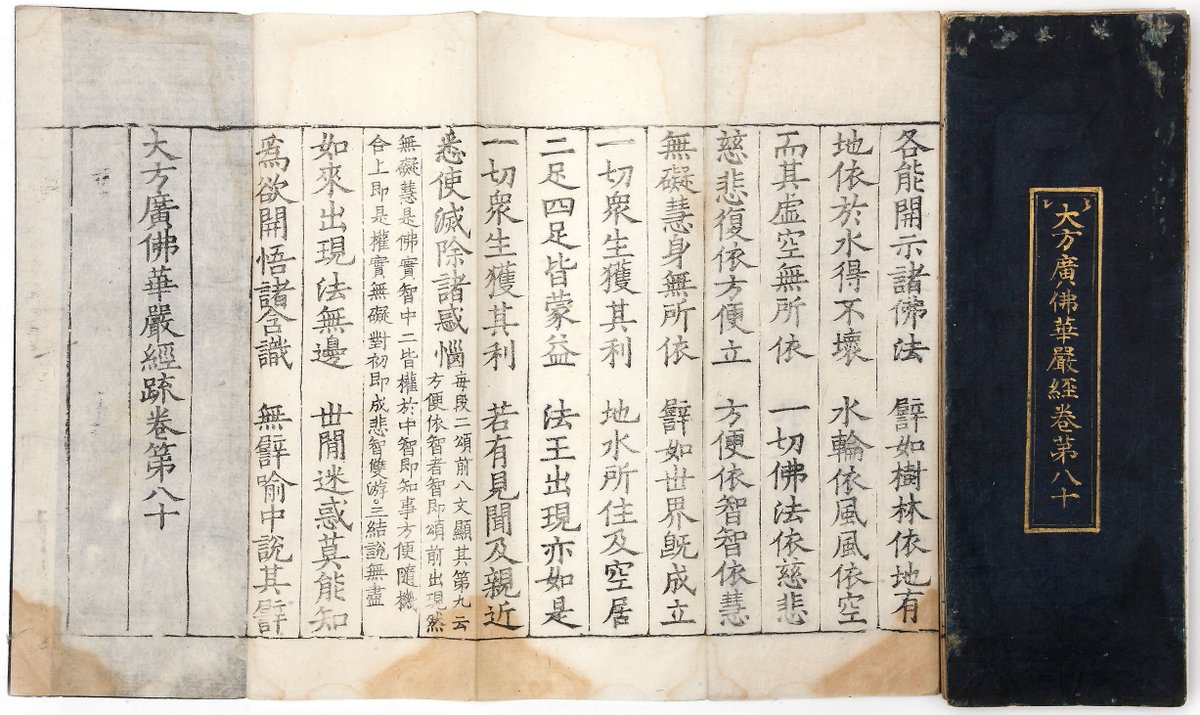 大方廣佛華嚴經卷第八十
各能開示諸佛法 譬如樹林依地有
地依於水得不壞 水輪依風風依空
而其虛空無所依 一切佛法依慈悲
慈悲復依方便立 方便依智智依慧
無礙慧身無所依 譬如世界旣成立
一切衆生獲其利 地水所住及空居
二足四足皆蒙益 法王出現亦如是
一切衆生獲其利 若有見聞及親近
悉使滅除諸惑惱 每段二頌前八文顯其第九云
方便依智者智即頌前出現然
無礙慧是佛實智中二皆權於中智即知事方便隨機
合上即是權實無礙對初即成悲智雙游。三結說無盡
如來出現法無邊 世間迷惑莫能知
爲欲開悟諸含識 無譬喻中說其譬
大方廣佛華嚴經䟽卷第八十